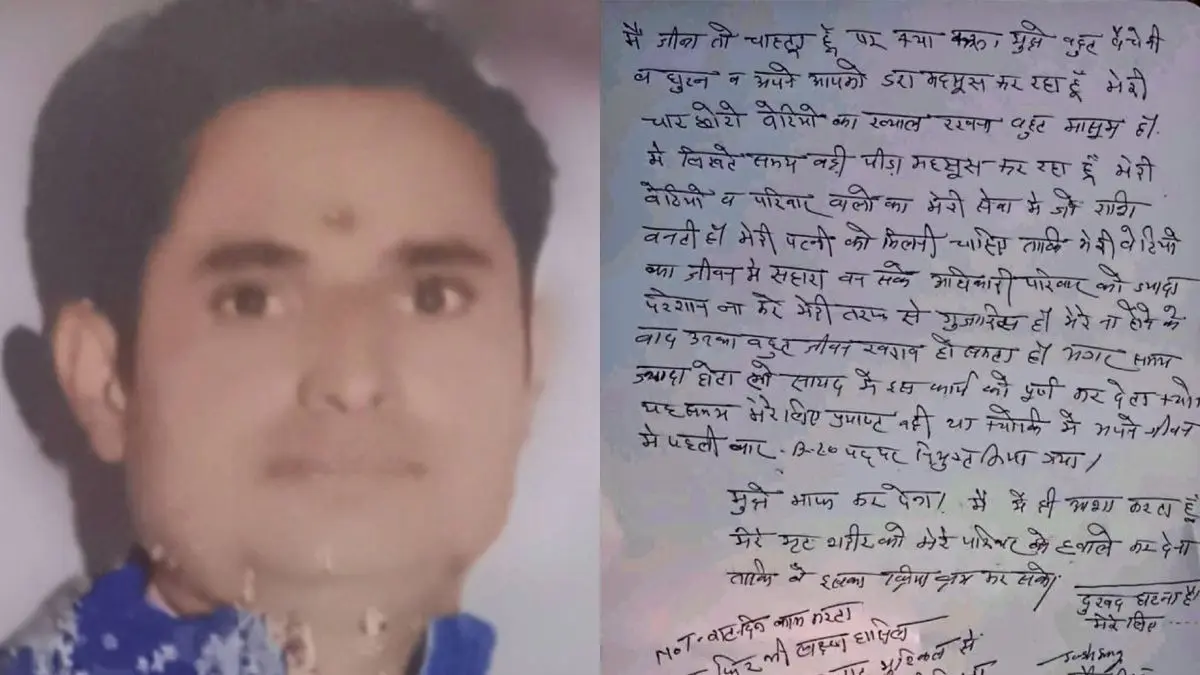 मै जीना तो चाहता हूँ पर क्या करू, मुझे बहुत बैचेनी
व घुटन व अपने आपको डरा महसूस कर रहा हूँ मेरी
चार छोटी बेटियो का ख्याल रखना बहुत मासूम हैं।
मे लिखते समय बड़ी पीड़ा महसूस कर रहा हूँ मेरी
बेटियो व परिवार वालो का मेरी सेवा मे जो राशि
बनती हो मेरी पत्नी को मिलनी चाहिए ताकि मेरी बेटियो
का जीवन मे सहारा बन सके अधिकारी परिवार को ज्यादा
परेशान ना करे मेरी तरफ से गुजारिस हैं मेरे ना होने के
बाद उनका बहुत जीवन खराब हो सकता हैं अगर समय
ज्यादा होता तो सायद मै इस कार्य को पूर्ण कर देता
यह समय मेरे लिए नही था क्योकि मै अपने जीवन
मे पहली बार पद पर नियुक्त किया गया।
मुझे माफ कर देना। मै मे ही आशा करता हूँ
मेरे मृत शरीर को मेरे परिवार के हवाले कर देना
ताकि वे इसका क्रिया कर सके।
दुखद घटना है
मेरे लिए
NOT- रात-दिन काम करता
फिर भी लक्ष्य हासिल
मुश्किल से